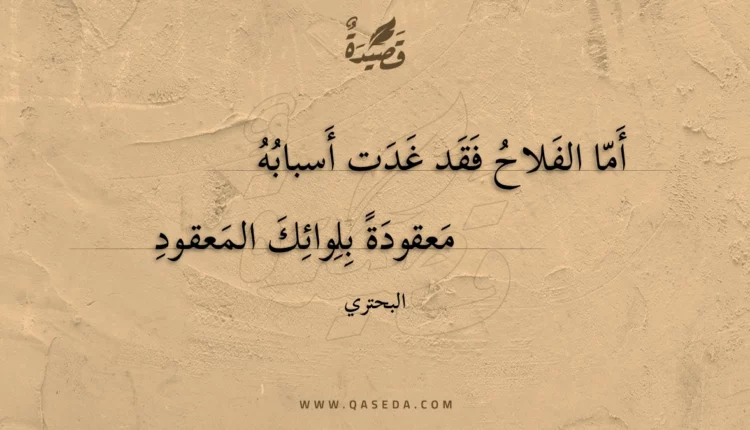 قَصِيدَةٌ
أَمّا الفَلاحُ فَقَد غَدَت أَسبابُهُ
مَعقودَةً بِلِوائِكَ المَعقودِ
البحتري
WWW.QASEDA.COM